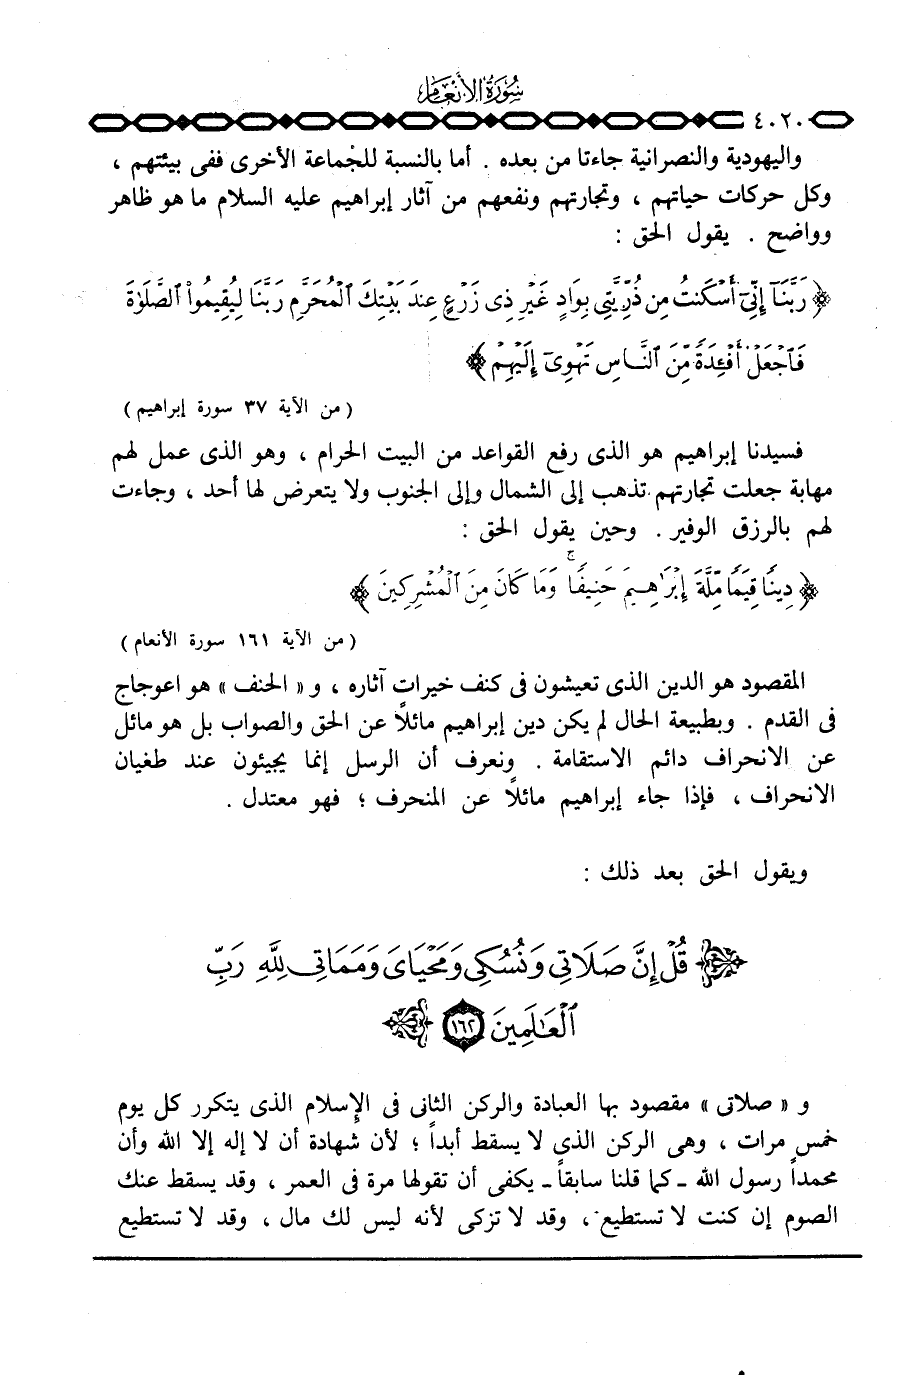 سُورَةُ الأَنْعَام
٤٠٢٠
واليهودية والنصرانية جاءتا من بعده . أما بالنسبة للجماعة الأخرى ففى بيئتهم ،
وكل حركات حياتهم ، وتجارتهم ونفعهم من آثار إبراهيم عليه السلام ما هو ظاهر
وواضح . يقول الحق :
﴿ رَبَّنَآ إِنِّىٓ أَسْكَنتُ مِن ذُرِّيَّتِى بِوَادٍ غَيْرِ ذِى زَرْعٍ عِندَ بَيْتِكَ ٱلْمُحَرَّمِ رَبَّنَا لِيُقِيمُوا۟ ٱلصَّلَوٰةَ
فَٱجْعَلْ أَفْـِٔدَةً مِّنَ ٱلنَّاسِ تَهْوِىٓ إِلَيْهِمْ ﴾
( من الآية ٣٧ سورة إبراهيم )
فسيدنا إبراهيم هو الذى رفع القواعد من البيت الحرام ، وهو الذى عمل لهم
مهابة جعلت تجارتهم تذهب إلى الشمال وإلى الجنوب ولا يتعرض لها أحد ، وجاءت
لهم بالرزق الوفير . وحين يقول الحق :
﴿ دِينًا قِيَمًا مِّلَّةَ إِبْرَٰهِيمَ حَنِيفًا ۚ وَمَا كَانَ مِنَ ٱلْمُشْرِكِينَ ﴾
( من الآية ١٦١ سورة الأنعام )
المقصود هو الدين الذى تعيشون فى كنف خيرات آثاره ، و « الحنف » هو اعوجاج
فى القدم . وبطبيعة الحال لم يكن دين إبراهيم مائلاً عن الحق والصواب بل هو مائل
عن الانحراف دائم الاستقامة . ونعرف أن الرسل إنما يجيئون عند طغيان
الانحراف ، فإذا جاء إبراهيم مائلاً عن المنحرف ؛ فهو معتدل .
ويقول الحق بعد ذلك :
﴿ قُلْ إِنَّ صَلَاتِى وَنُسُكِى وَمَحْيَاىَ وَمَمَاتِى لِلَّهِ رَبِّ
ٱلْعَٰلَمِينَ ١٦٢ ﴾
و « صلاتى » مقصود بها العبادة والركن الثانى فى الإسلام الذى يتكرر كل يوم
خمس مرات ، وهى الركن الذى لا يسقط أبداً ؛ لأن شهادة أن لا إله إلا الله وأن
محمداً رسول الله ـ كما قلنا سابقاً ـ يكفى أن تقولها مرة فى العمر ، وقد يسقط عنك
الصوم إن كنت لا تستطيع ، وقد لا تزكى لأنه ليس لك مال ، وقد لا تستطيع